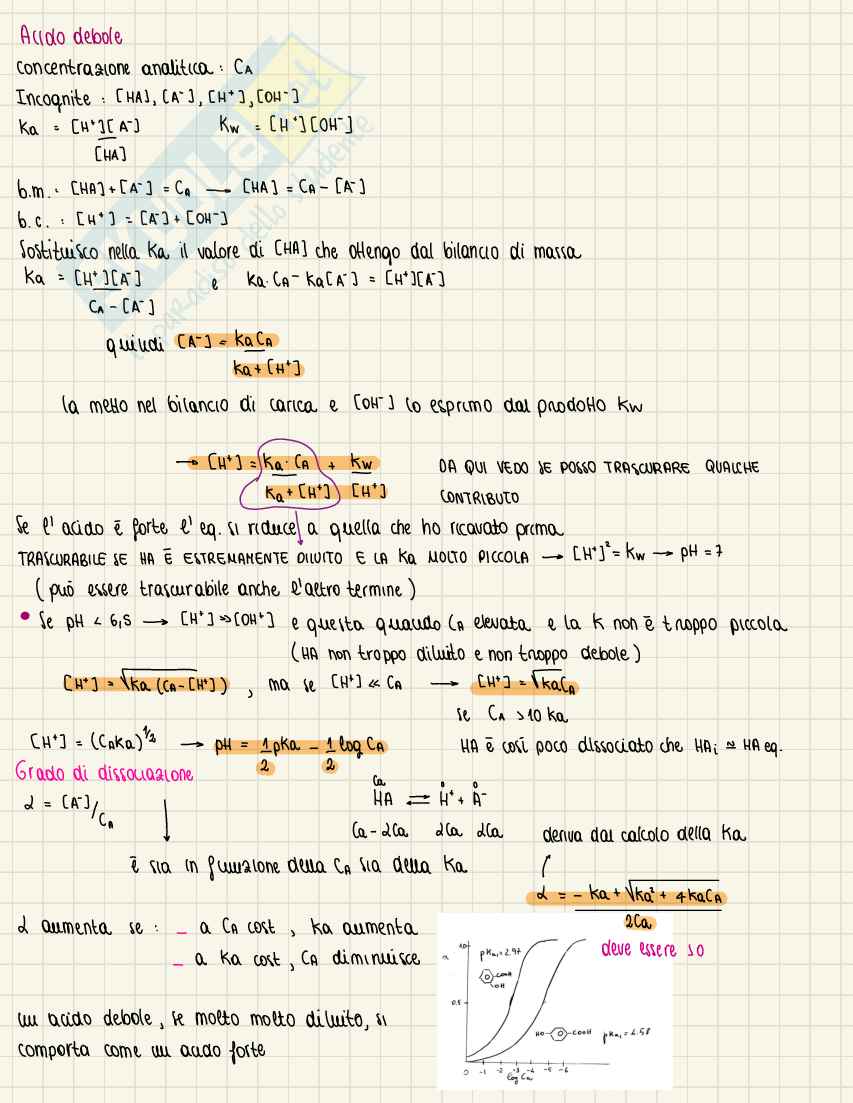 Acido debole
concentrazione analitica : CA
Incognite : [HA], [A⁻], [H⁺], [OH⁻]
Ka = [H⁺][A⁻] / [HA]   Kw = [H⁺][OH⁻]
b.m. : [HA]+[A⁻] = CA → [HA] = CA – [A⁻]
b.c. : [H⁺] = [A⁻]+[OH⁻]
Sostituisco nella Ka il valore di [HA] che ottengo dal bilancio di massa
Ka = [H⁺][A⁻] / CA – [A⁻]   e   Ka·CA – Ka[A⁻] = [H⁺][A⁻]
quindi [A⁻] = KaCA / Ka + [H⁺]
la metto nel bilancio di carica e [OH⁻] lo esprimo dal prodotto Kw
→ [H⁺] = Ka·CA / Ka + [H⁺] + Kw / [H⁺]   DA QUI VEDO SE POSSO TRASCURARE QUALCHE
CONTRIBUTO
Se l'acido è forte l'eq. si riduce a quella che ho ricavato prima
TRASCURABILE SE HA È ESTREMAMENTE DILUITO E LA Ka MOLTO PICCOLA → [H⁺]² = Kw → pH = 7
(può essere trascurabile anche l'altro termine)
• Se pH < 6,5 → [H⁺] >> [OH⁺] e questa quando CA elevata e la K non è troppo piccola
(HA non troppo diluito e non troppo debole)
[H⁺] = √Ka (CA–[H⁺]) , ma se [H⁺] << CA → [H⁺] = √KaCA
se CA > 10 Ka
[H⁺] = (CAKa)^1/2 → pH = 1/2 pKa – 1/2 log CA   HA è così poco dissociato che HAi ≃ HA eq.
Grado di dissociazione
α = [A⁻]/CA
Ca   0   0
HA ⇌ H⁺ + A⁻
Ca – αCa   αCa   αCa
deriva dal calcolo della Ka
è sia in funzione della CA sia della Ka
α = – Ka + √Ka² + 4KaCA / 2Ca
deve essere >0
α aumenta se : – a CA cost, Ka aumenta
– a Ka cost, CA diminuisce
un acido debole, se molto molto diluito, si
comporta come un acido forte
α
1.0
0.5
pKa₁=2.97
COOH
OH
HO
COOH
pKa₁=4.58
0 -1 -2 -3 -4 -5 -6
log Ca
SKUOLA.net
il paradiso dello studente